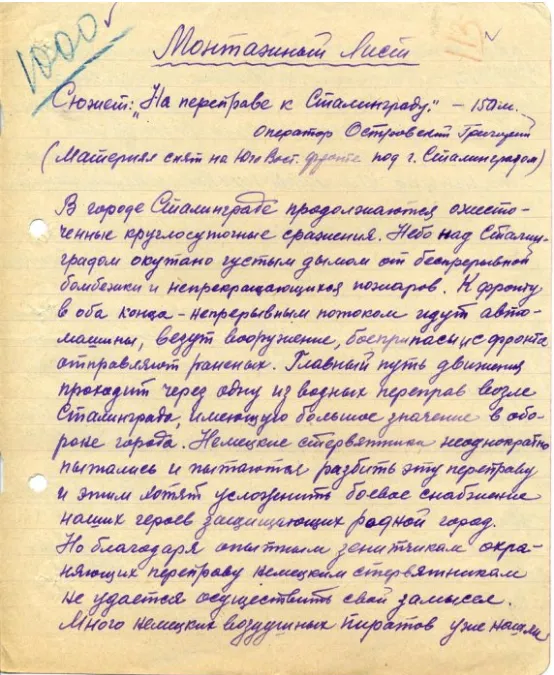 1000 ✓
113 ✓
Монтажный лист
Сюжет: "На переправе к Сталинграду." – 150 м.
Оператор Островский Григорий
(Материал снят на Юго Вост. фронте под г. Сталинградом)
В городе Сталинграде продолжаются ожесто-
ченные круглосуточные сражения. Небо над Сталин-
градом окутано густым дымом от беспрерывной
бомбежки и непрекращающихся пожаров. К фронту
в оба конца – непрерывным потоком идут авто-
машины, везут вооружение, боеприпасы и с фронта
отправляют раненых. Главный путь движения
проходит через одну из водных переправ возле
Сталинграда, имеющую большое значение в обо-
роне города. Немецкие стервятники неоднократно
пытались и пытаются разбить эту переправу
и этим хотят усложнить боевое снабжение
наших героев защищающих родной город.
Но благодаря опытным зенитчикам охра-
няющих переправу немецким стервятникам
не удается осуществить свой замысел.
Много немецких воздушных пиратов уже нашли